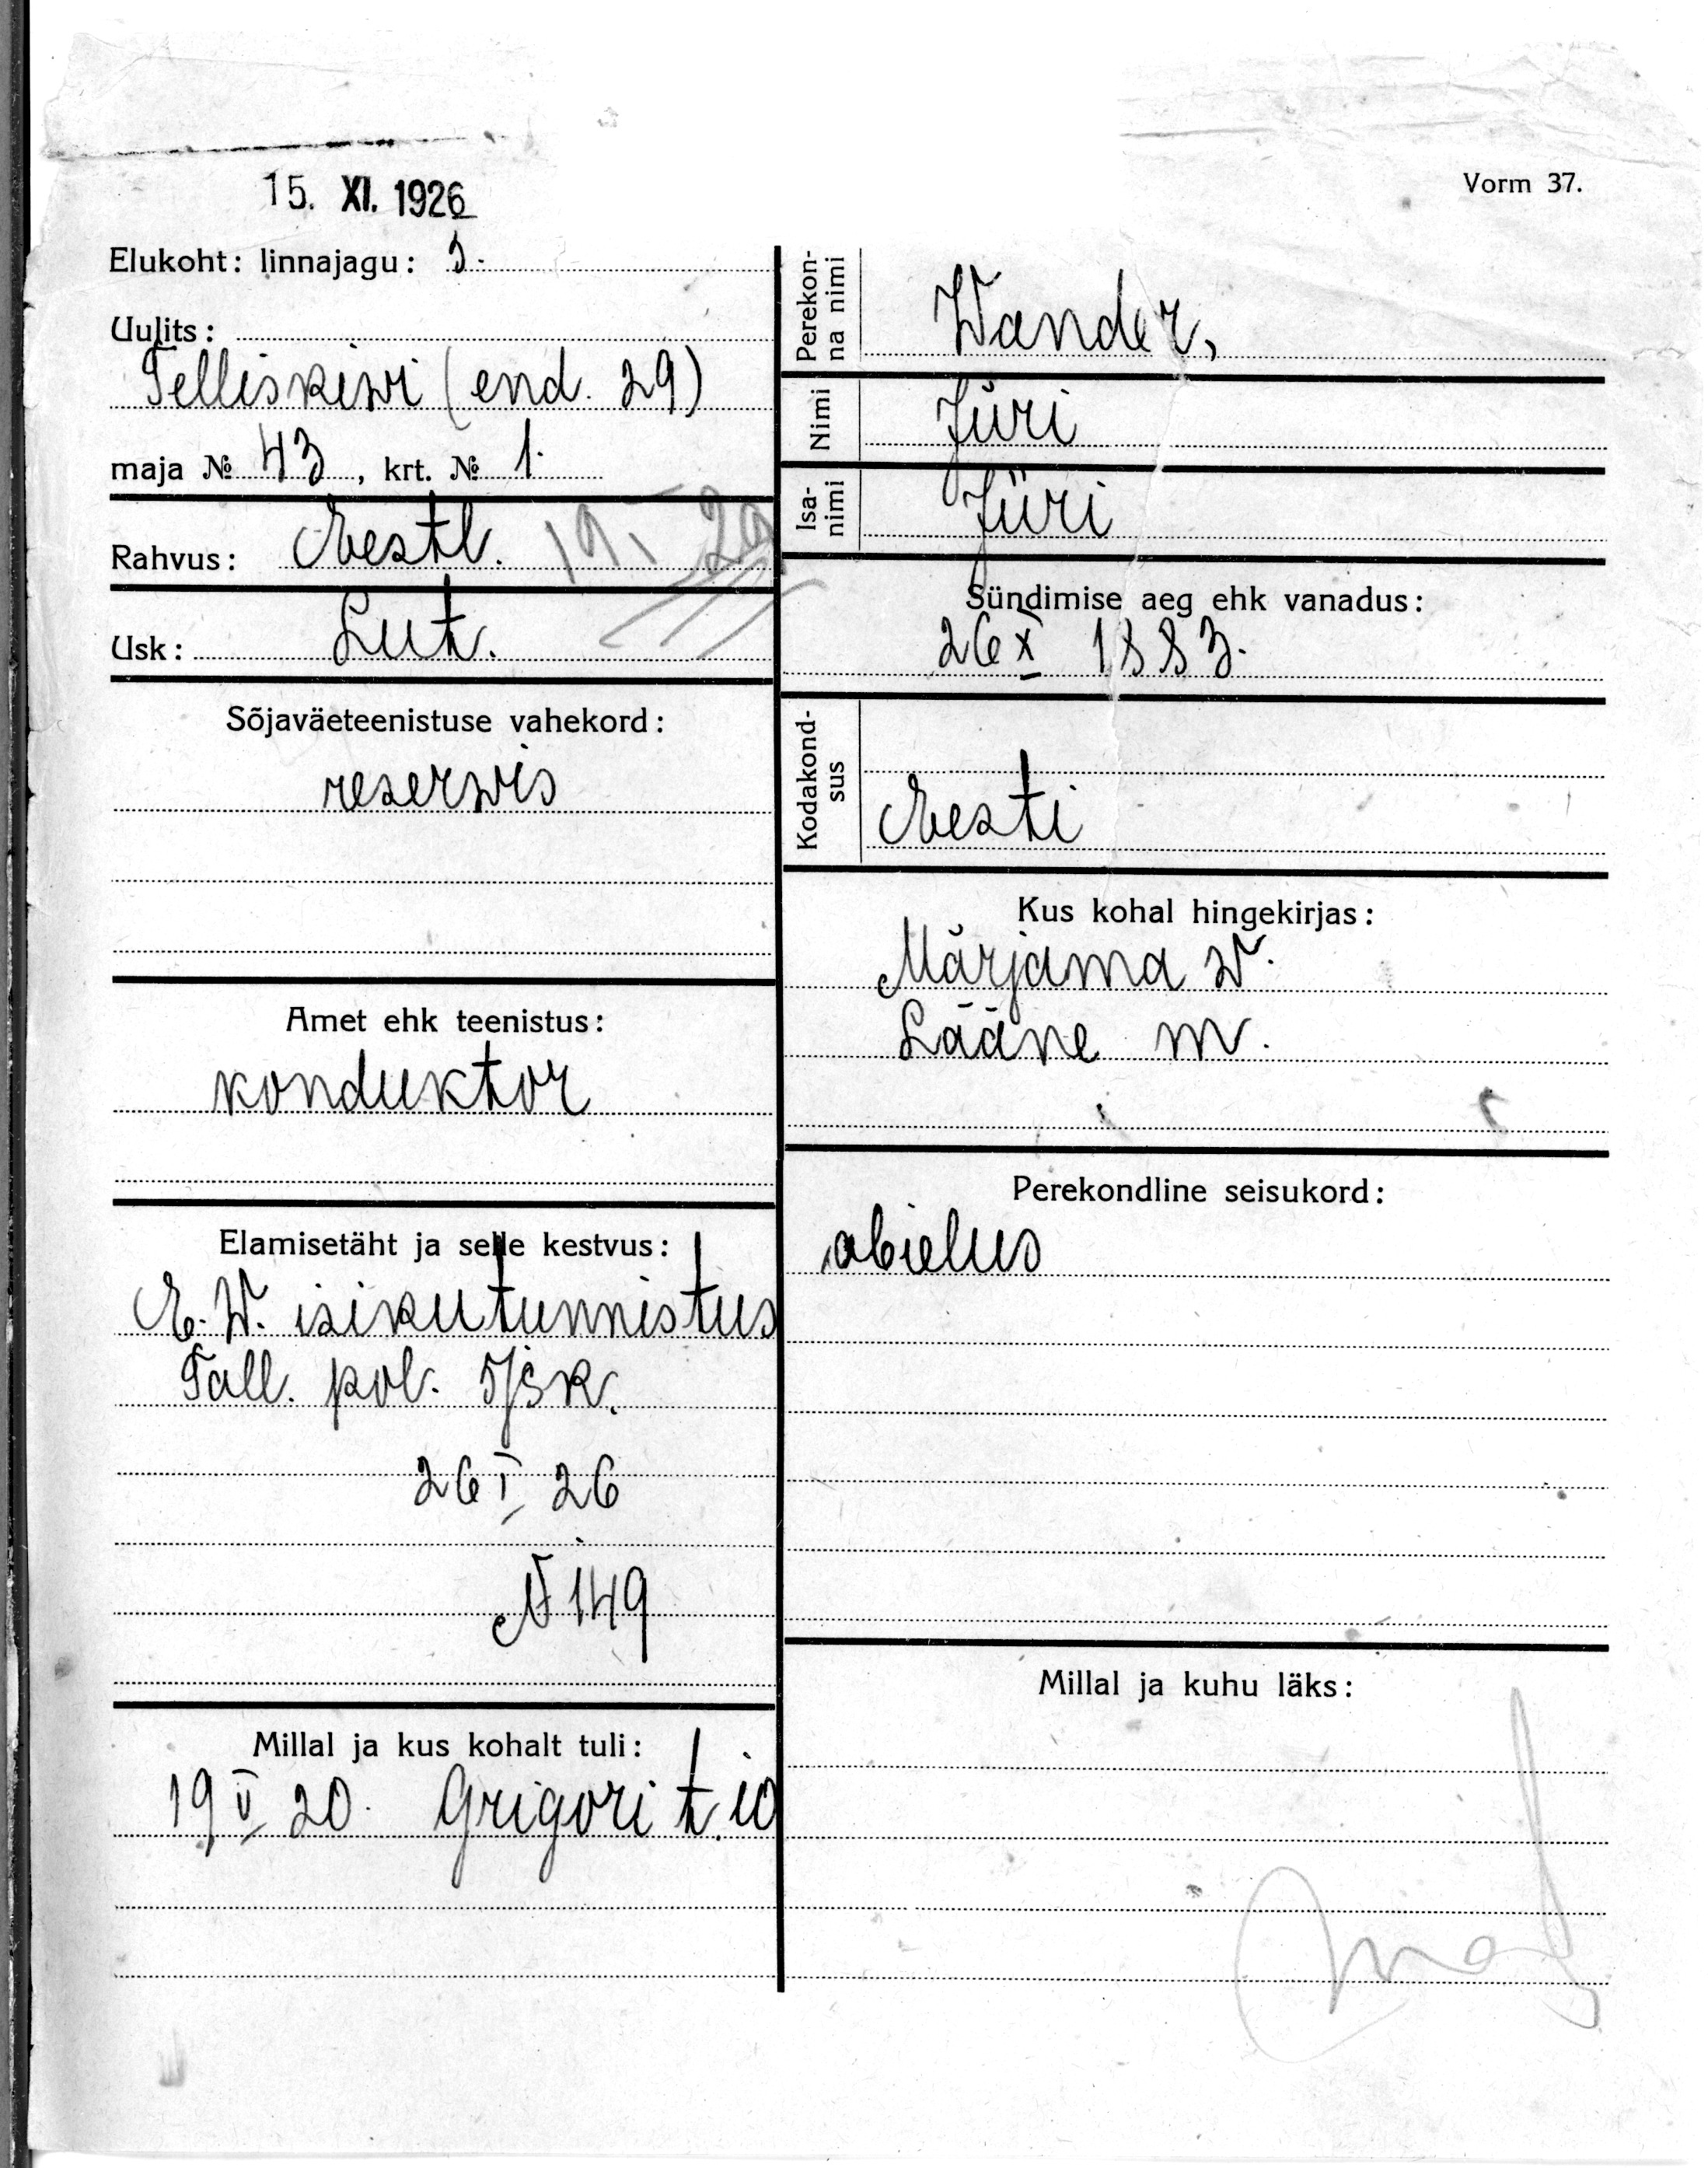 15. XI. 1926
Vorm 37.
Elukoht: linnajagu: 3.
Uulits:
Telliskiwi (end. 29)
maja № 43, krt. № 1.
Rahvus: Eestl.
Usk: Lut.
Sõjaväeteenistuse vahekord:
reserwis
Amet ehk teenistus:
konduktor
Elamisetäht ja selle kestvus:
E. W. isikutunnistus
Tall. pol. 5/jsk.
26 I 26
N 149
Millal ja kus kohalt tuli:
19 V 20. Grigori t. 10
Perekon-
na nimi
Wander,
Nimi
Jüri
Isa-
nimi
Jüri
Sündimise aeg ehk vanadus:
26 X 1883.
Kodakond-
sus
Eesti
Kus kohal hingekirjas:
Märjama w.
Lääne m.
Perekondline seisukord:
abielus
Millal ja kuhu läks: